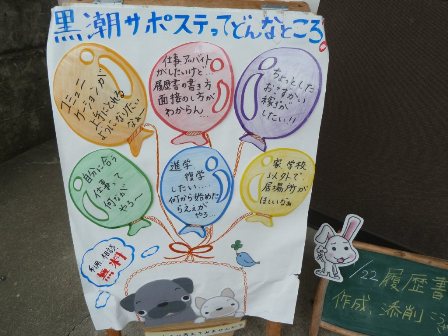 黒潮サポステってどんなところ
コミュニ
ケーションが
上手にとれる
ようになりたい
なぁー
仕事アルバイト
がしたいけど…
履歴書の書き方
面接のし方が
わからん…
ちょっとした
おこづかい
稼ぎが
したい!!
自分に合う
仕事って
何なが
やろー
進学
復学
したい…
何から始めた
らえいが
やろ…
家、学校
以外で
居場所が
ほしいなぁ
利用 相談
無料
1/22 履歴書
作成、添削